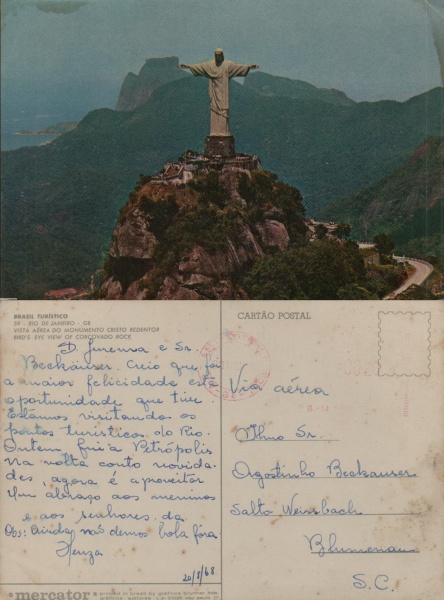 BRASIL TURÍSTICO
59 - RIO DE JANEIRO - GB
VISTA AÉREA DO MONUMENTO CRISTO REDENTOR
BIRD'S-EYE VIEW OF CORCOVADO ROCK
D. Jurema e Sr.
Beckäuser. Creio que foi
a maior felicidade esta
oportunidade que tive
Estamos visitando os
pontos turísticos do Rio.
Ontem fui a Petrópolis
na volta conto novida-
des, agora é aproveitar
Um abraço aos meninos
e aos senhores da
Obs: Ainda não demos bola fora
20/8/68
mercator
CARTÃO POSTAL
Via aérea
Ilmo Sr.
Agostinho Beckauser
Salto Weissbach
Blumenau
S.C.